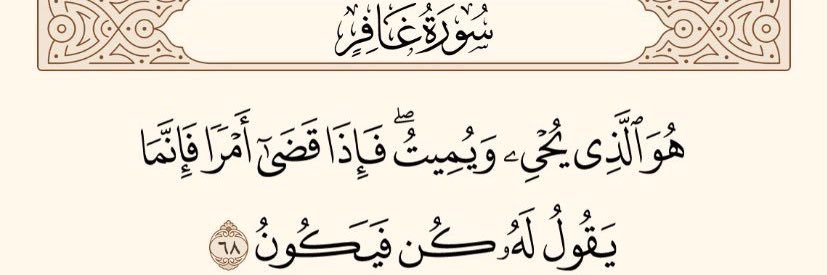 سُورَةُ غَافِرٍ
هُوَ ٱلَّذِى يُحْىِۦ وَيُمِيتُ ۖ فَإِذَا قَضَىٰٓ أَمْرًا فَإِنَّمَا
يَقُولُ لَهُۥ كُن فَيَكُونُ ٦٨